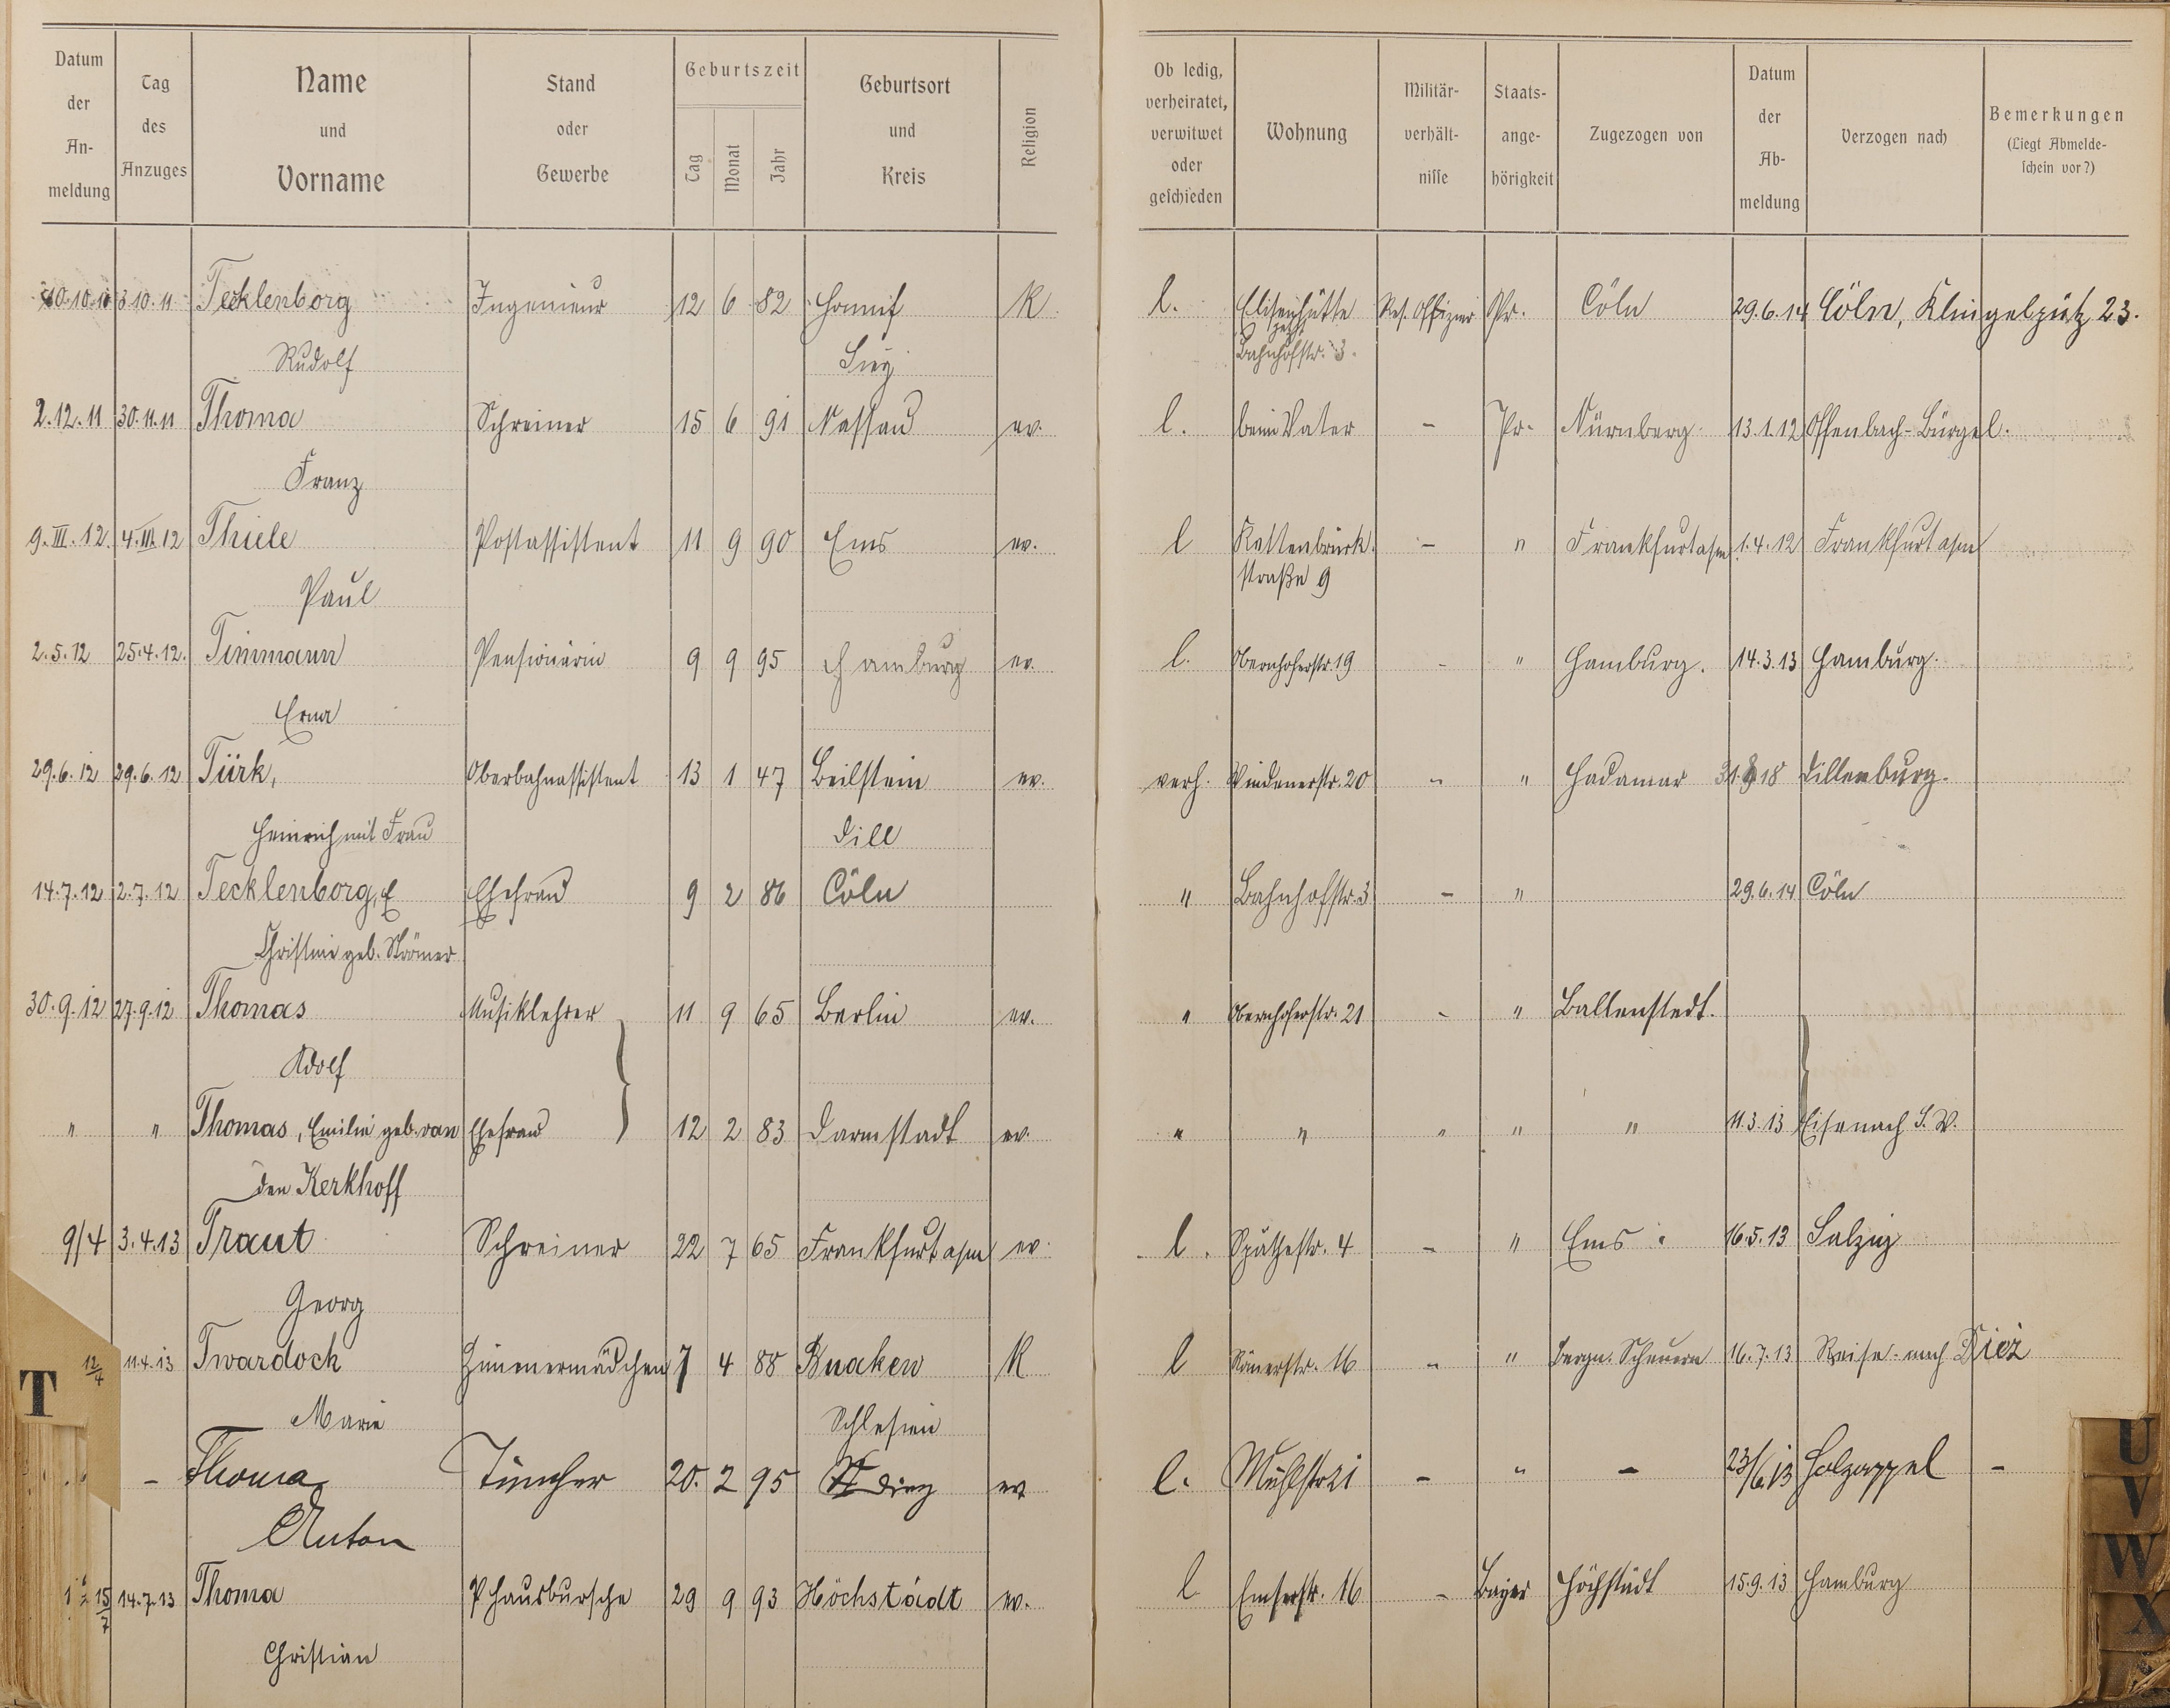 Datum der Anmeldung | Tag des Anzuges | Name und Vorname | Stand oder Gewerbe | Geburtszeit Tag Monat Jahr | Geburtsort und Kreis | Religion | Ob ledig, verheiratet, verwitwet oder geschieden | Wohnung | Militärverhältnisse | Staatsangehörigkeit | Zugezogen von | Datum der Abmeldung | Verzogen nach | Bemerkungen (Liegt Abmeldeschein vor?)
3.10.11 Tecklenborg Ingenieur 12 6 82 Honnef K. l. Elisenhütte Res. Offizier Pr. Cöln 29.6.14 Cöln, Klingelpütz 23.
Rudolf Sieg jetzt Bahnhofstr. 3.
2.12.11 30.11.11 Thoma Schreiner 15 6 91 Nassau ev. l. beim Vater - Pr. Nürnberg 13.1.12 Offenbach-Bürgel.
Franz
9.III.12. 4.III.12 Thiele Postassistent 11 9 90 Ems ev. l Kettenbrück- - " Frankfurt a/m 1.4.12 Frankfurt a/m
Paul straße 9
2.5.12 25.4.12. Timmann Pensionärin 9 9 95 Hamburg ev. l. Obernhoferstr 19 - " Hamburg. 14.3.13 Hamburg.
Erna
29.6.12 29.6.12 Türk, Oberbahnassistent 13 1 47 Beilstein ev. verh. Windenerstr. 20 - " Hadamar 18 Dillenburg.
Heinrich mit Frau Dill
14.7.12 2.7.12 Tecklenborg, E Ehefrau 9 2 86 Cöln " Bahnhofstr. 3 - " 29.6.14 Cöln
Christine geb.
30.9.12 27.9.12 Thomas Musiklehrer 11 9 65 Berlin ev. " Obernhoferstr. 21 - " Ballenstedt.
Adolf
" " Thomas, Emilie geb. van Ehefrau 12 2 83 Darmstadt ev. " " " " " 11.3.13 Eisenach S. W.
den Kerkhoff
9/4 3.4.13 Traut Schreiner 22 7 65 Frankfurt a/m ev. l. Späthestr. 4 - " Ems 16.5.13 Salzig
Georg
12/4 11.4.13 Twardoch Zimmermädchen 7 4 88 Knaken K l Römerstr. 16 - " Bergn. Scheuern 16.7.13 Reise nach Diez
Marie Schlesien
T
- Thoma Tüncher 20. 2 95 Diez ev l. Mühlstr 21 - " - 23/6.13 Holzappel -
Anton
15/7 14.7.13 Thoma Hausbursche 29 9 93 Höchstädt ev. l Emserstr. 16 - Bayer Höchstädt 15.9.13 Hamburg
Christian
U
V
W
X